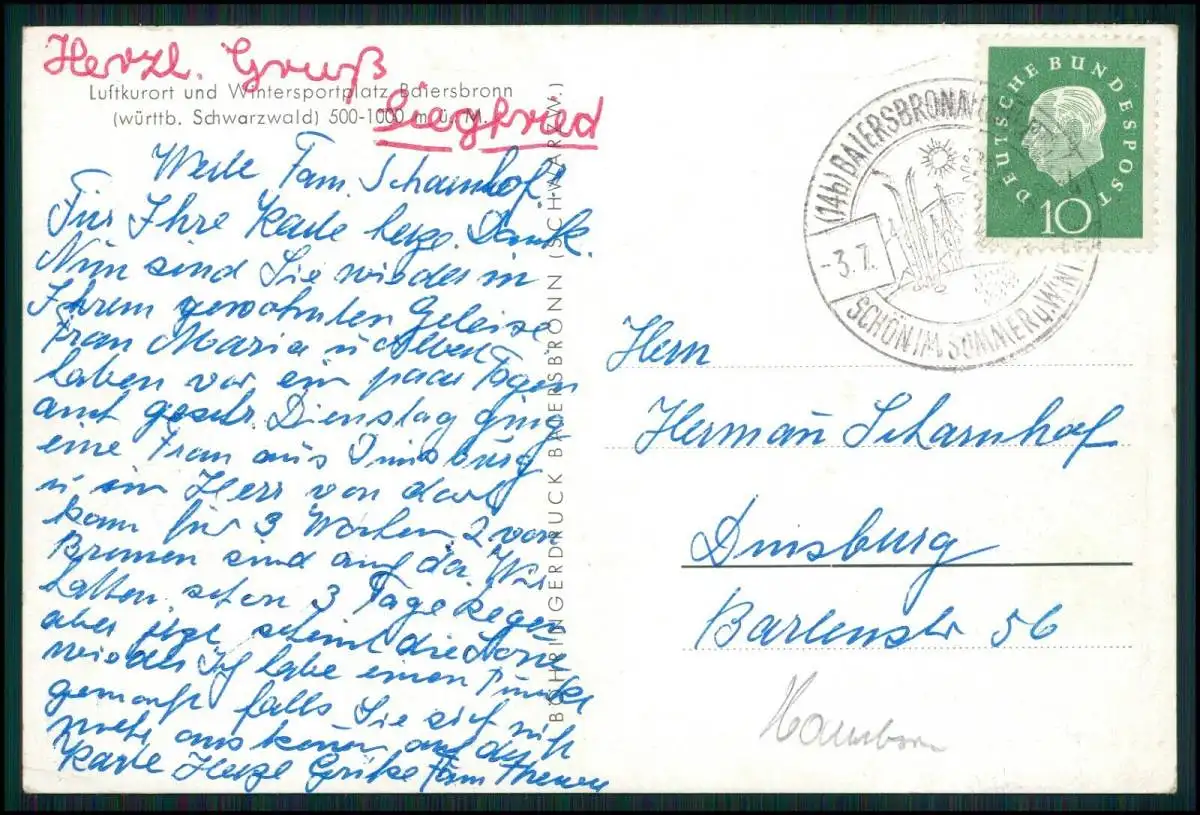 Herzl. Gruß
Siegfried
Luftkurort und Wintersportplatz Baiersbronn
(württb. Schwarzwald) 500-1000 m ü. M.
Werte Fam. Scharnhof!
Für Ihre Karte herzl. Dank.
Nun sind Sie wieder in
Ihrem gewohnten Geleise
Frau Maria u Albert
haben vor ein paar Tagen
auch geschr. Dienstag ging
eine Frau aus Duisburg
u ein Herr von dort
kam für 3 Wochen 2 von
Bremen sind auch da. Wir
hatten schon 3 Tage Regen
aber jetzt scheint die Sonne
wieder Ich habe einen Punkt
gemacht falls Sie sich nicht
mehr auskönen auf der
Karte Herzl Grüße Fam
BÖHRINGERDRUCK BAIERSBRONN (SCHWARZW.)
(14b) BAIERSBRONN
- 3. 7.
SCHÖN IM SOMMER U. WINT
DEUTSCHE BUNDESPOST
10
Herrn
Herman Scharnhof
Duisburg
Barlenstr 56
Hamborn